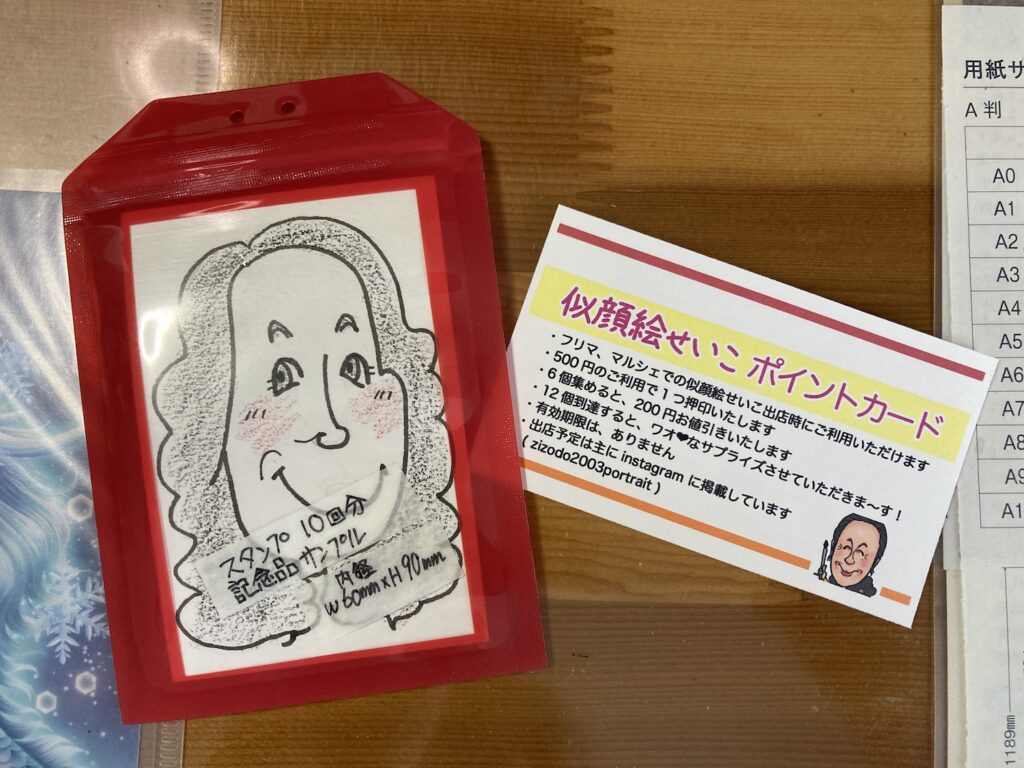 スタンプ 10回分
記念品サンプル
内径
W 60mm×H 90mm
似顔絵せいこ ポイントカード
・フリマ、マルシェでの似顔絵せいこ出店時にご利用いただけます
・500円のご利用で1つ押印いたします
・6個集めると、200円お値引きいたします
・12個到達すると、ワオ❤なサプライズさせていただきま〜す！
・有効期限は、ありません
・出店予定は主に instagram に掲載しています
( zizodo2003portrait )
用紙サ
A 判
A0
A1
A2
A3
A4
A5
A6
A7
A8
A9
A1
1189mm